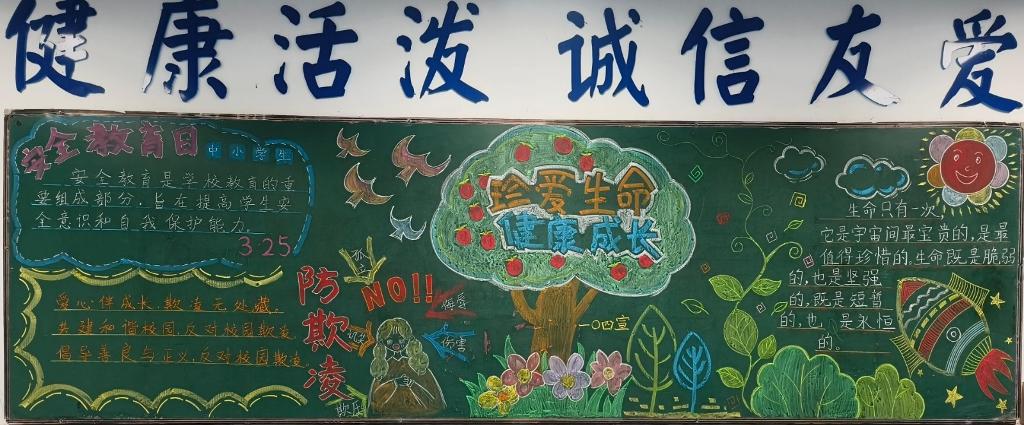 健康活泼 诚信友爱
安全教育日 中小学生
安全教育是学校教育的重
要组成部分，旨在提高学生安
全意识和自我保护能力。
3.25
爱心伴成长，欺凌无处藏。
共建和谐校园，反对校园欺凌
倡导善良与正义，反对校园欺凌
防欺凌
孤立
NO!!
侮辱
伤害
欺压
珍爱生命
健康成长
一〇四宣
生命只有一次！
它是宇宙间最宝贵的，是最
值得珍惜的。生命既是脆弱
的，也是坚强
的，既是短暂
的，也 是永恒
的。